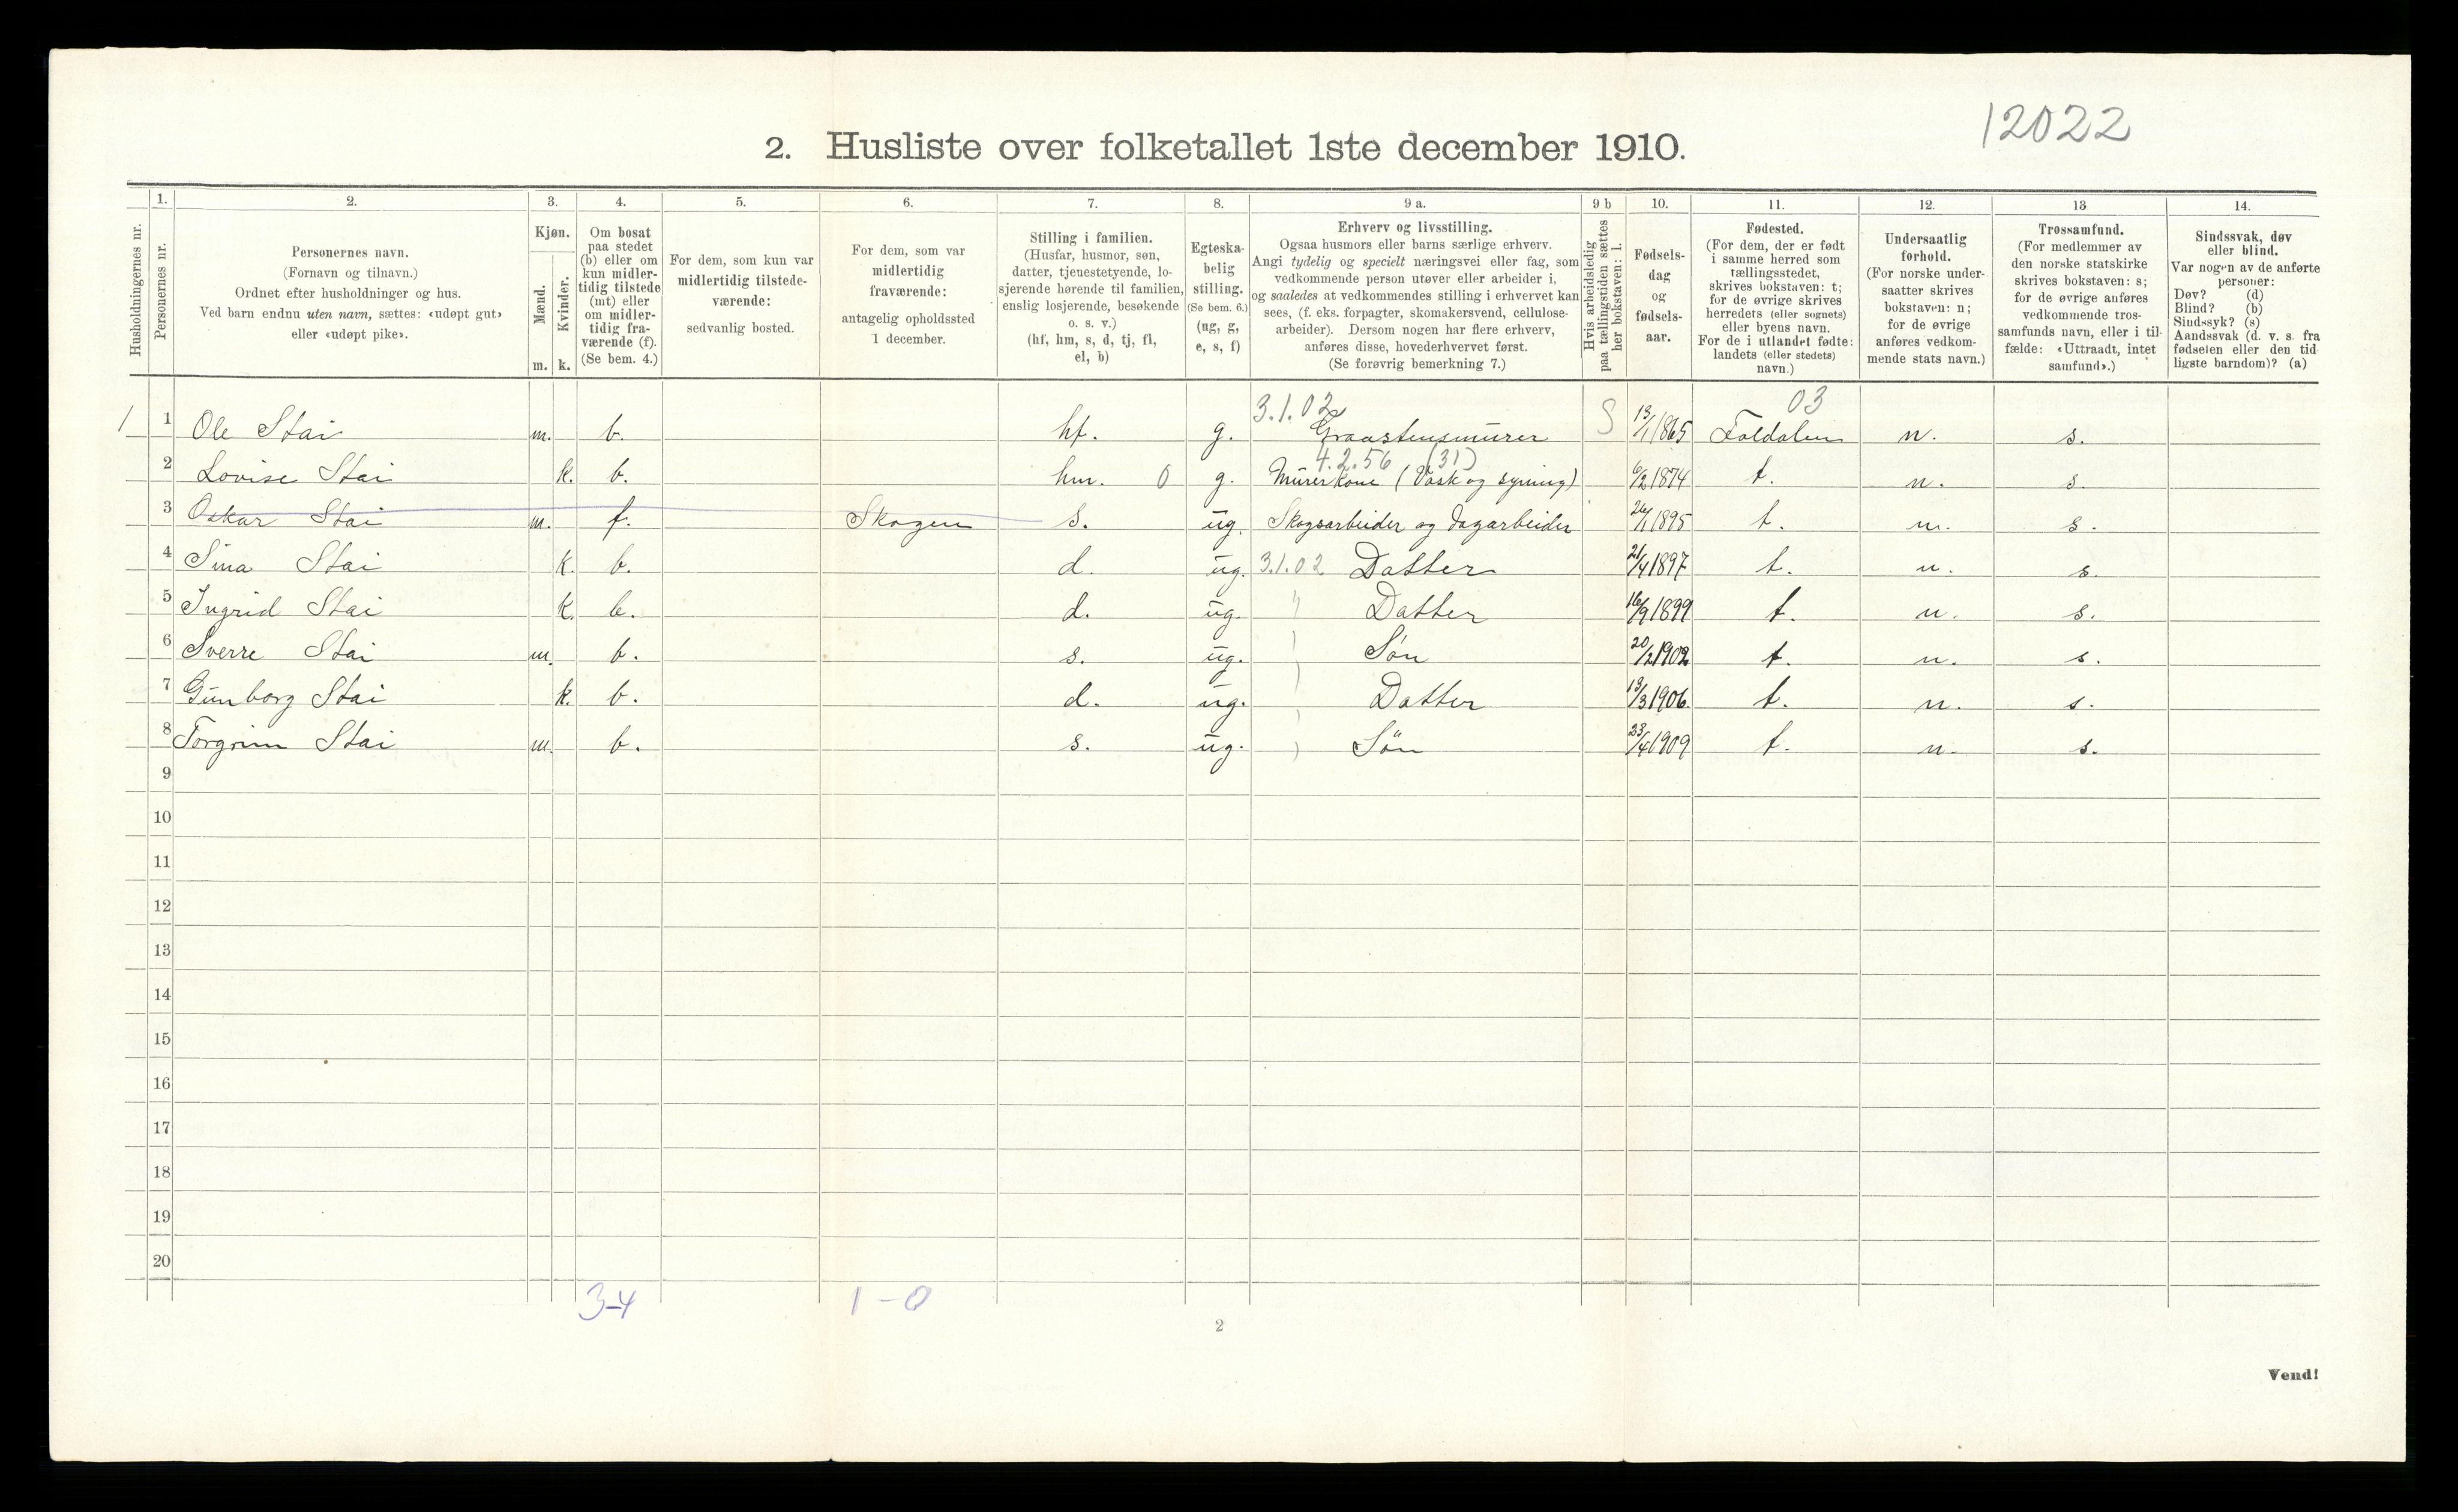 12022
2. Husliste over folketallet 1ste december 1910.
Husholdningernes nr.
1.
Personernes nr.
2.
Personernes navn.
(Fornavn og tilnavn.)
Ordnet efter husholdninger og hus.
Ved barn endnu uten navn, sættes: «udøpt gut»
eller «udøpt pike».
3.
Kjøn.
Mænd.
Kvinder.
m. k.
4.
Om bosat
paa stedet
(b) eller om
kun midler-
tidig tilstede
(mt) eller
om midler-
tidig fra-
værende (f).
(Se bem. 4.)
5.
For dem, som kun var
midlertidig tilstede-
værende:
sedvanlig bosted.
6.
For dem, som var
midlertidig
fraværende:
antagelig opholdssted
1 december.
7.
Stilling i familien.
(Husfar, husmor, søn,
datter, tjenestetyende, lo-
sjerende hørende til familien,
enslig losjerende, besøkende
o. s. v.)
(hf, hm, s, d, tj, fl,
el, b)
8.
Egteska-
belig
stilling.
(Se bem. 6.)
(ug, g,
e, s, f)
9 a.
Erhverv og livsstilling.
Ogsaa husmors eller barns særlige erhverv.
Angi tydelig og specielt næringsvei eller fag, som
vedkommende person utøver eller arbeider i,
og saaledes at vedkommendes stilling i erhvervet kan
sees, (f. eks. forpagter, skomakersvend, cellulose-
arbeider). Dersom nogen har flere erhverv,
anføres disse, hovederhvervet først.
(Se forøvrig bemerkning 7.)
9 b
Hvis arbeidsledig
paa tællingstiden sættes
her bokstaven: l.
10.
Fødsels-
dag
og
fødsels-
aar.
11.
Fødested.
(For dem, der er født
i samme herred som
tællingsstedet,
skrives bokstaven: t;
for de øvrige skrives
herredets (eller sognets)
eller byens navn.
For de i utlandet fødte:
landets (eller stedets)
navn.)
12.
Undersaatlig
forhold.
(For norske under-
saatter skrives
bokstaven: n;
for de øvrige
anføres vedkom-
mende stats navn.)
13
Trossamfund.
(For medlemmer av
den norske statskirke
skrives bokstaven: s;
for de øvrige anføres
vedkommende tros-
samfunds navn, eller i til-
fælde: «Uttraadt, intet
samfund».)
14.
Sindssvak, døv
eller blind.
Var nogen av de anførte
personer:
Døv? (d)
Blind? (b)
Sindssyk? (s)
Aandssvak (d. v. s. fra
fødselen eller den tid-
ligste barndom)? (a)
3.1.02 03
1 1 Ole Stai m. b. hf. g. Graastensmurer S 13/1 1865 Foldalen n. s.
4.2.56 (31)
2 Lovise Stai k. b. hm. 0 g. Murerkone (Vask og syning) 6/2 1874 t. n. s.
3 Oskar Stai m. f. Skogen s. ug. Skogsarbeider og dagarbeider 26/1 1895 t. n. s.
4 Sina Stai k. b. d. ug. 3.1.02 Datter 21/4 1897 t. n. s.
5 Ingrid Stai k. b. d. ug. " Datter 16/9 1899 t. n. s.
6 Sverre Stai m. b. s. ug. Søn 20/2 1902 t. n. s.
7 Gunborg Stai k. b. d. ug. Datter 13/3 1906. t. n. s.
8 Torgrim Stai m. b. s. ug. Søn 23/4 1909 t. n. s.
9
10
11
12
13
14
15
16
17
18
19
20
3-4 1-0
2
Vend!